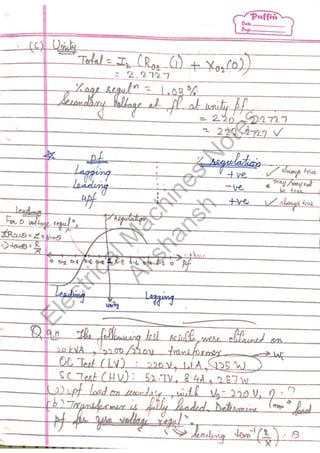 Puffin
Date
Page
(c) Unity
Total = I₂ (R₀₂ (1) + X₀₂(0))
= 2.2727
%age regulⁿ = 1.09%
Secondary Voltage at fl. at unity pf
= 220 - 2.2727
pf % regulation
Lagging +ve ✓ always true
Leading -ve * may/may not be true
upf +ve ✓ always true
Leading
For 0 voltage regulⁿ,
IR cosθ = IX sinθ
⇒ tanθ = R/X
% regulation
0 0.2 0.4 0.6 0.8 1 0.8 0.6 0.4 0.2 0 pf
Leading unity Lagging
Q. The following test results were obtained on
20 kVA, 2200/220V transformer
OC Test (LV) : 220V, 1.1A, 125W
SC Test (HV) : 52.7V, 8.4A, 287W
(a) upf load on secondary, with V₂ = 220V, η = ?
(b) Transformer is fully loaded. Determine load
pf for zero voltage regulⁿ.
leading tan⁻¹(R/X) = θ
Electrical Machines Notes
Akshansh